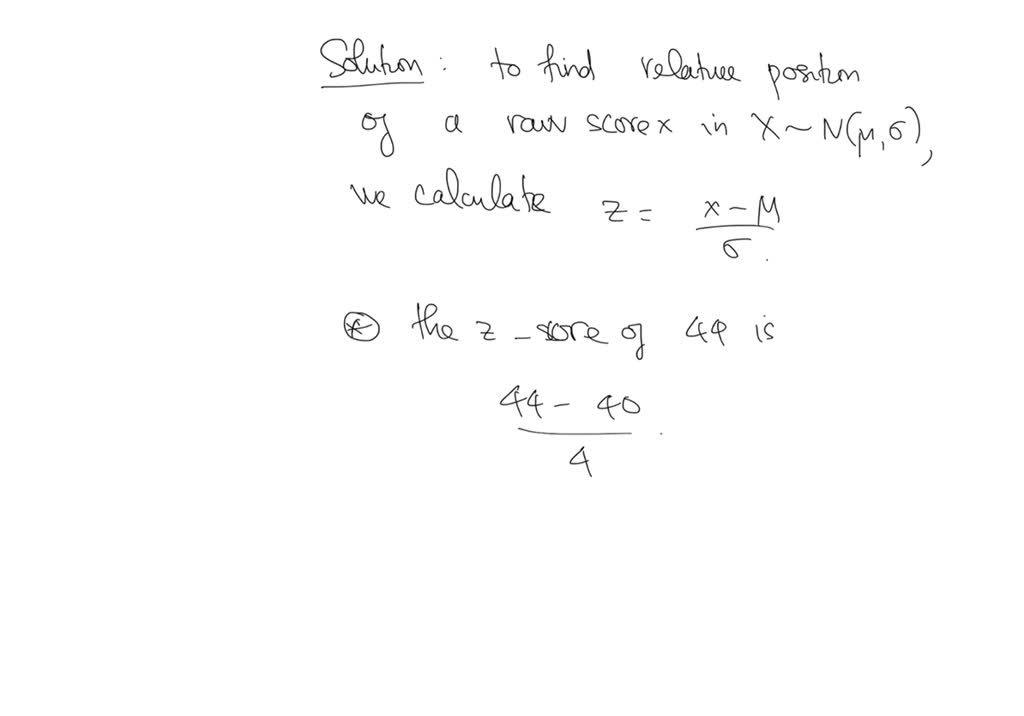 Solution : to find relative position
of a raw score x in X ~ N(μ, σ),
we calculate z = x - μ / σ.
* the z-score of 44 is
44 - 40 / 4 .